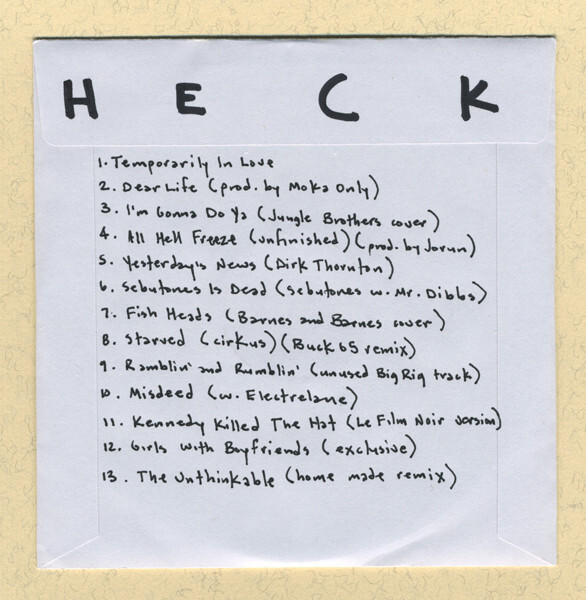 H E C K
1. Temporarily In Love
2. Dear Life (prod. by Moka Only)
3. I'm Gonna Do Ya (Jungle Brothers cover)
4. All Hell Freeze (unfinished) (prod. by Jorun)
5. Yesterday's News (Dirk Thornton)
6. Sebutones Is Dead (Sebutones w. Mr. Dibbs)
7. Fish Heads (Barnes and Barnes cover)
8. Starved (cirkus) (Buck 65 remix)
9. Ramblin' and Rumblin' (unused Big Rig track)
10. Misdeed (w. Electrelane)
11. Kennedy Killed The Hat (Le Film Noir version)
12. Girls With Boyfriends (exclusive)
13. The Unthinkable (home made remix)